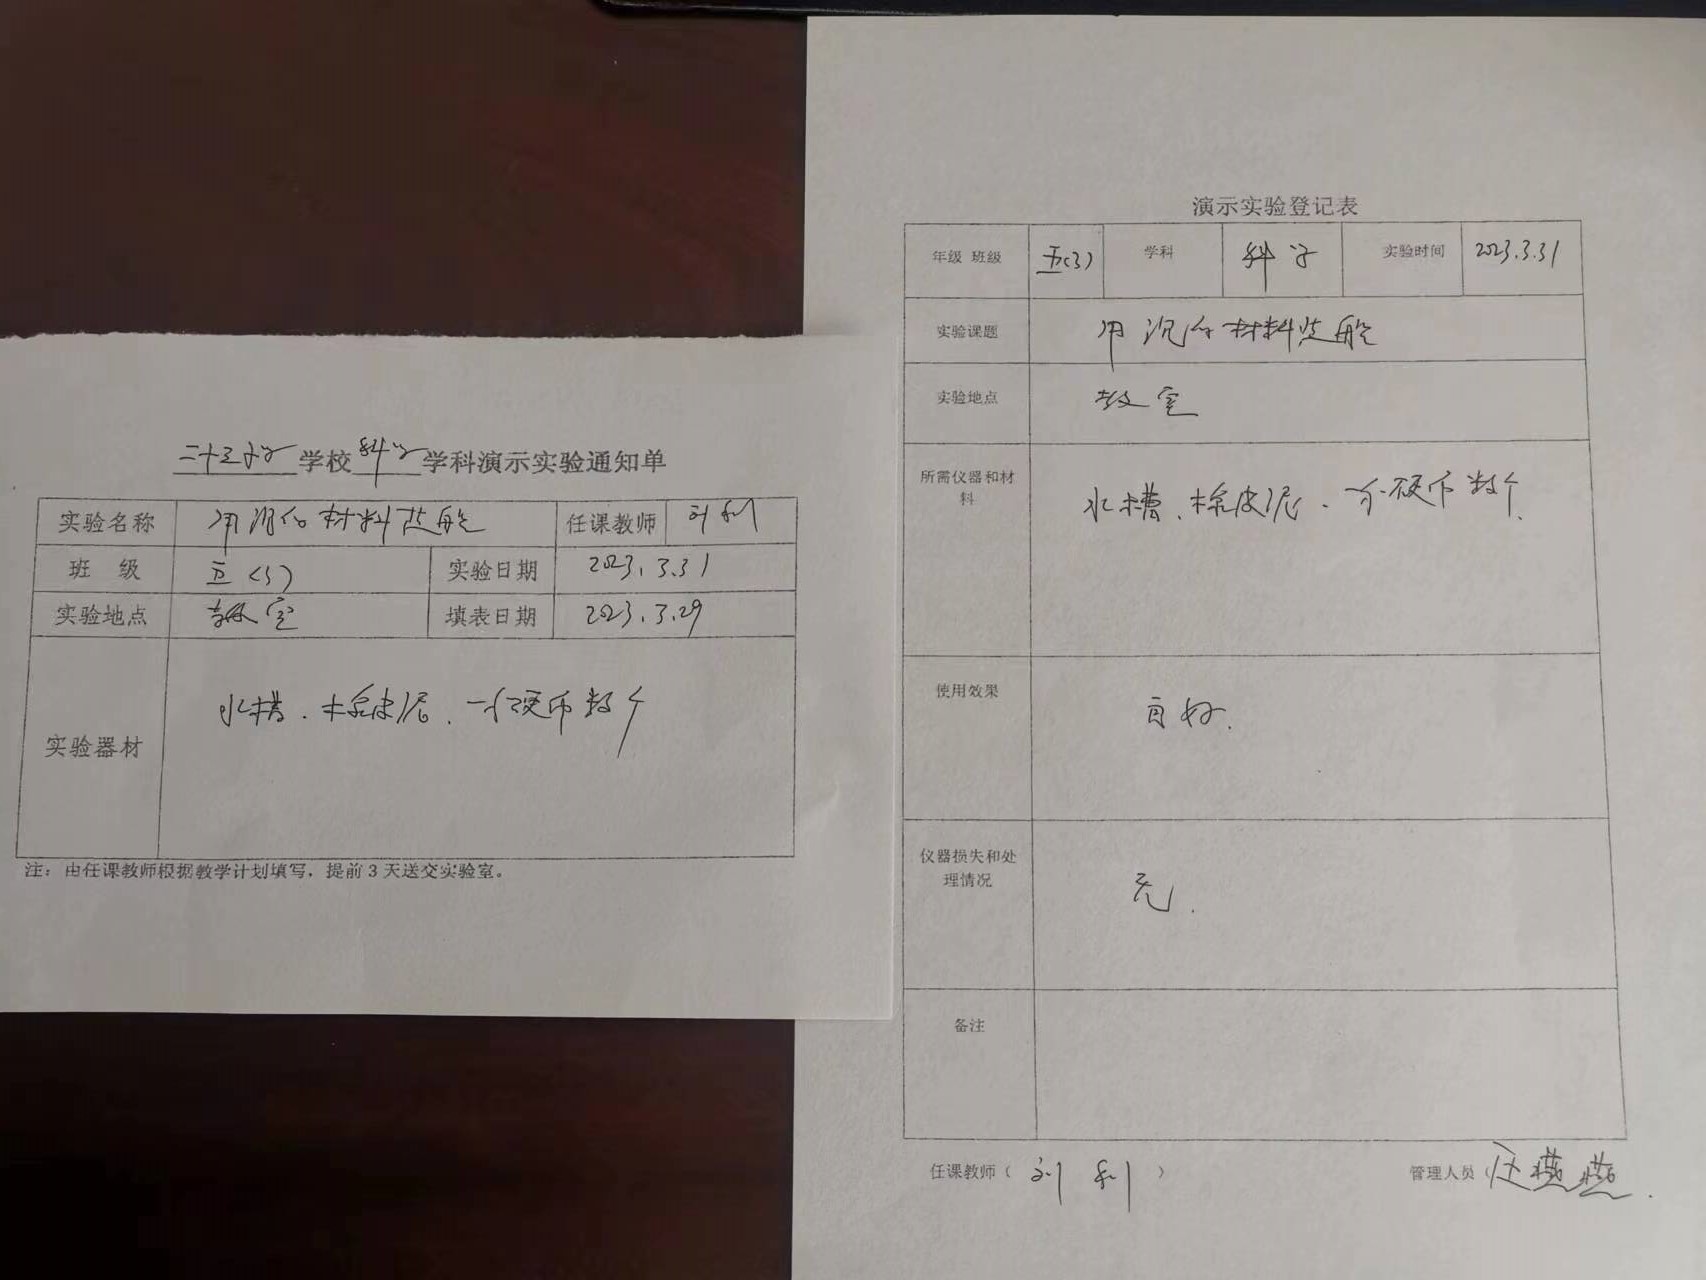 二十三小学学校科学学科演示实验通知单
实验名称 用沉的材料造船 任课教师 刘利
班 级 五(3) 实验日期 2023.3.31
实验地点 教室 填表日期 2023.3.29
实验器材 水槽、橡皮泥、硬币数个
注：由任课教师根据教学计划填写，提前3天送交实验室。
演示实验登记表
年级 班级 五(3) 学科 科学 实验时间 2023.3.31
实验课题 用沉的材料造船
实验地点 教室
所需仪器和材
料
水槽、橡皮泥、硬币数个
使用效果 良好.
仪器损失和处
理情况
无.
备注
任课教师（ 刘 利 ） 管理人员（ 燕燕